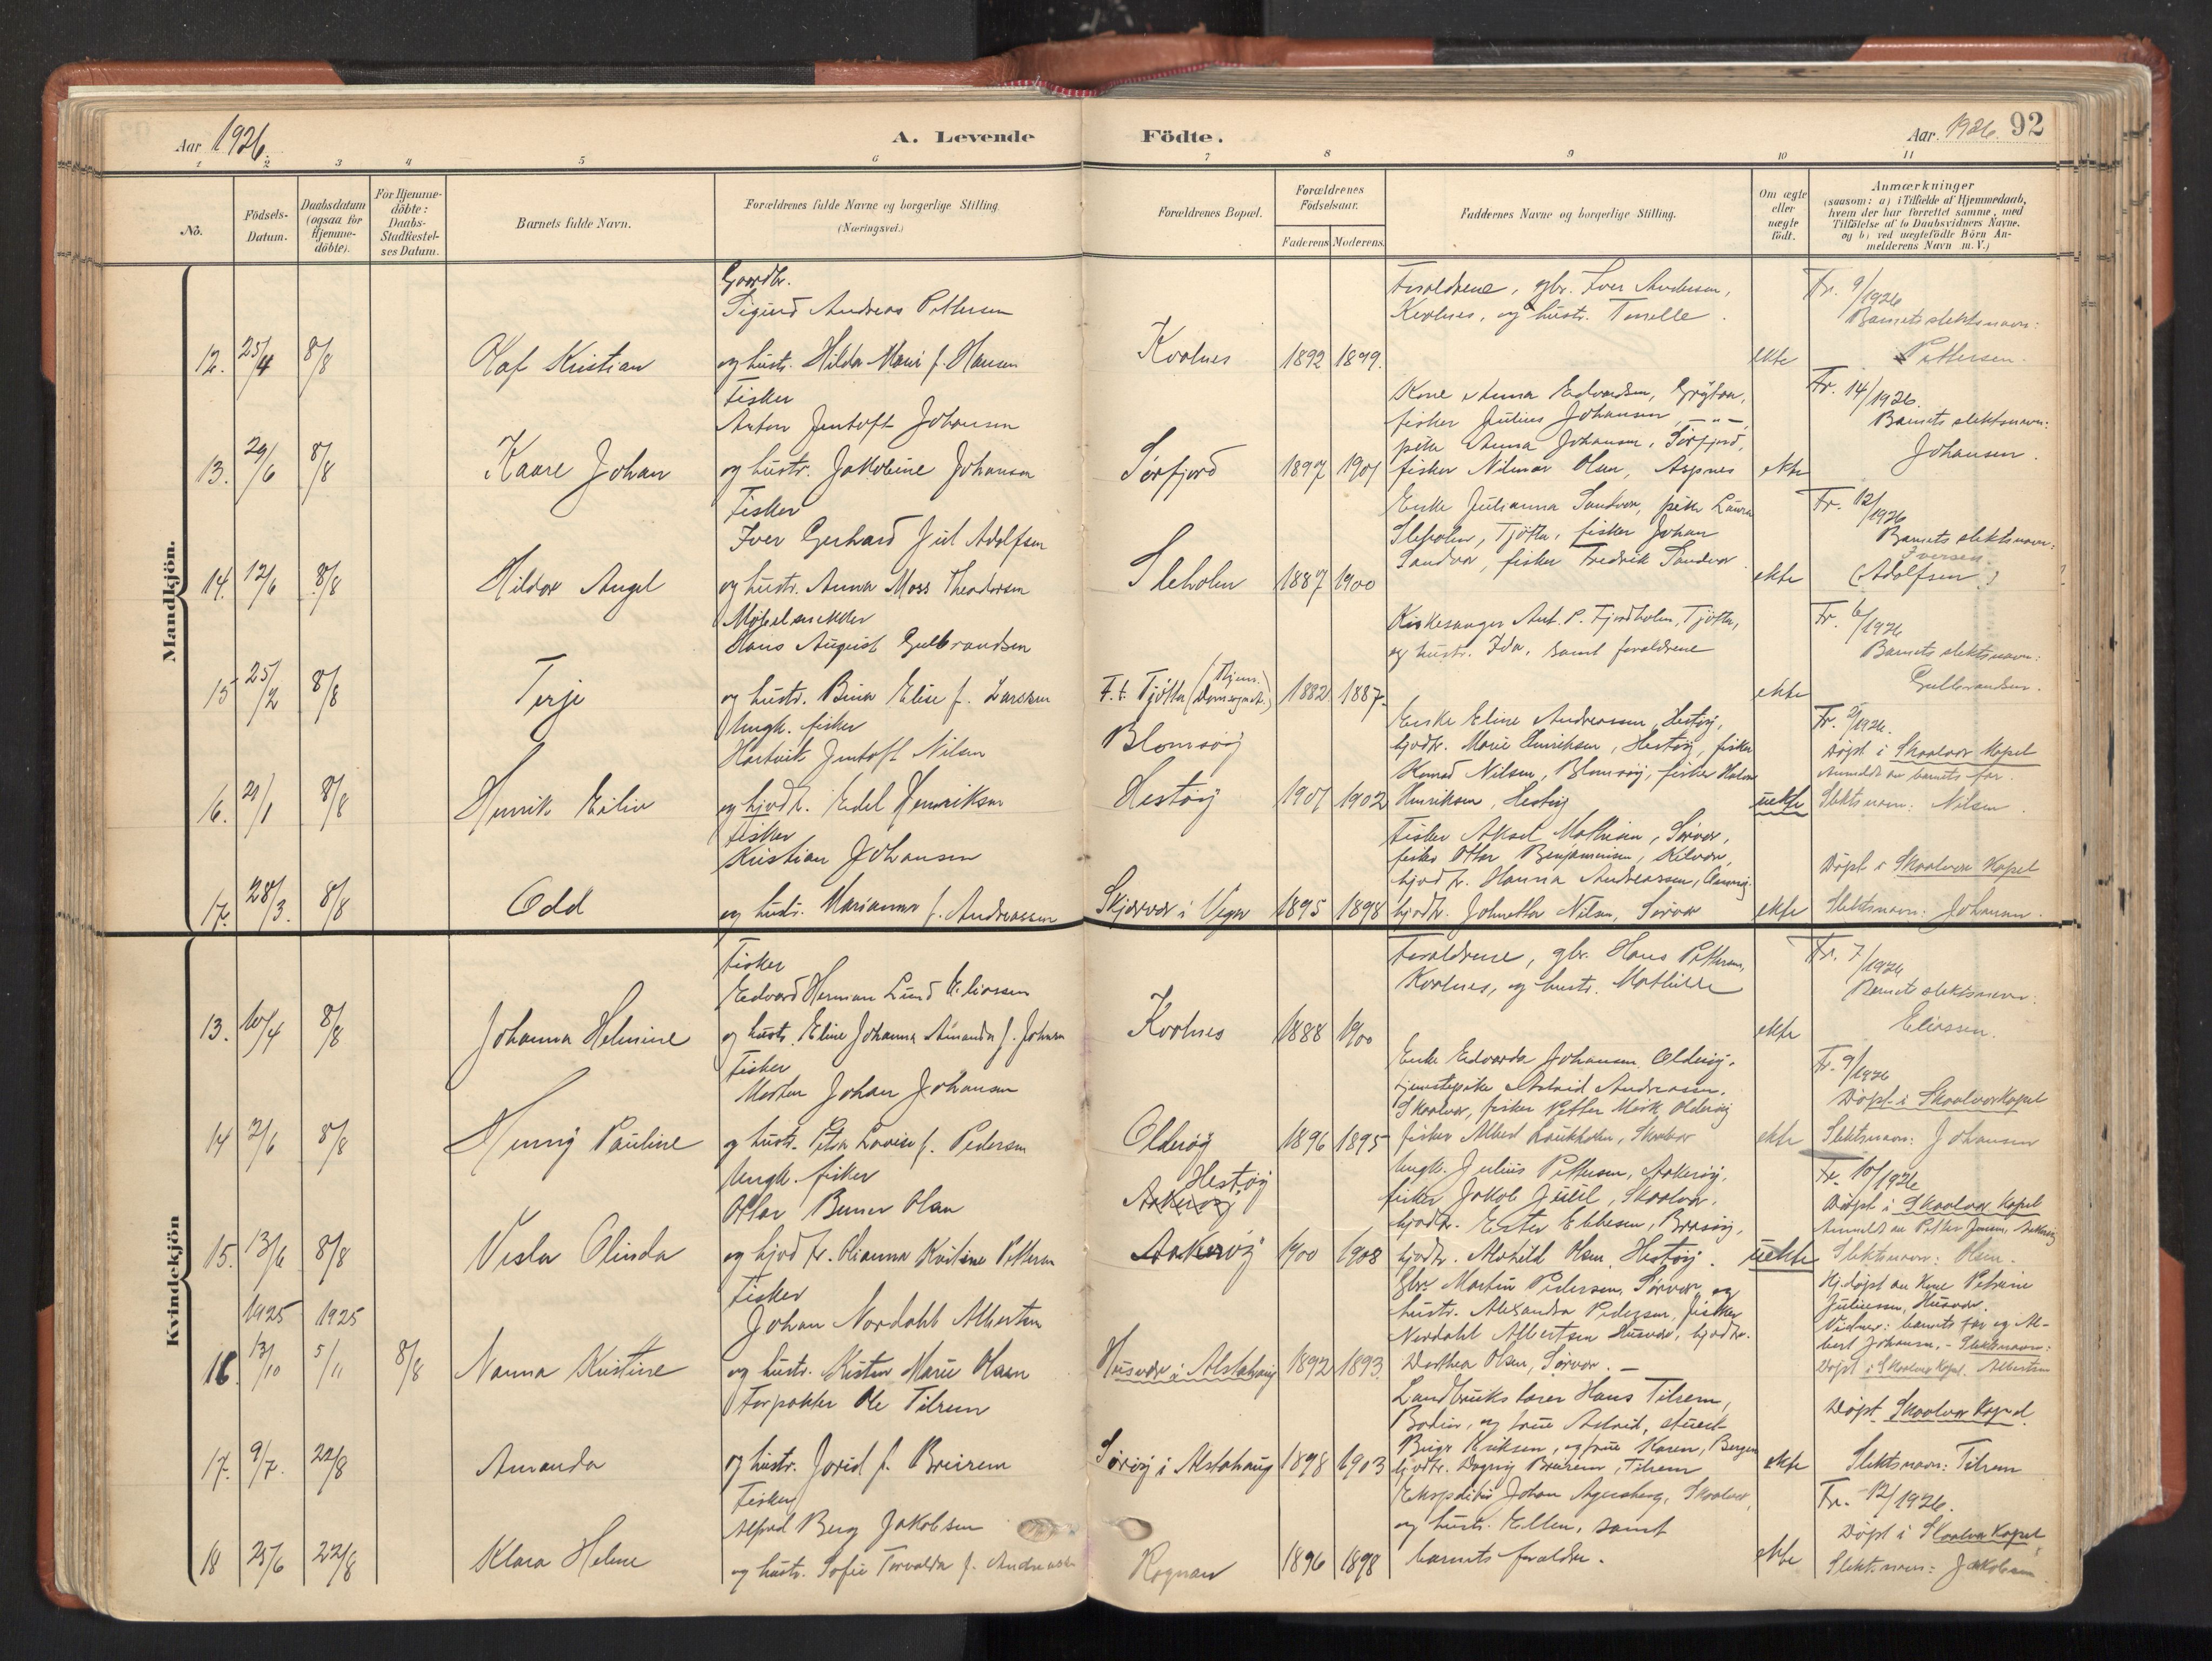 Aar 1926.
A. Levende
Födte.
Aar. 1926. 92
1 2 3 4 5 6 7 8 9 10 11
No.
Födsels-
Datum.
Daabsdatum
(ogsaa for
Hjemme-
döbte).
For Hjemme-
döbte:
Daabs-
Stadfæstel-
ses Datum.
Barnets fulde Navn.
Forældrenes fulde Navne og borgerlige Stilling.
(Næringsvei.)
Forældrenes Bopæl.
Forældrenes
Födselsaar.
Faderens Moderens
Faddernes Navne og borgerlige Stilling.
Om ægte
eller
uægte
födt.
Anmærkninger
(saasom: a) i Tilfælde af Hjemmedaab,
hvem der har forrettet samme, med
Tilföielse af to Daabsvidners Navne.
og b) ved uægtefödte Börn An-
melderens Navn m. V.)
Mandkjön.
12. 25/4 8/8
Olaf Kristian
Gaardbr.
Sigurd Andreas Pettersen
og hustr. Hilda Marie f. Hansen
Kvalnes
1892 1899.
Forældrene, gbr. Iver Andersen,
Kvalnes, og hustr. Torelle.
ekte
Fr. 9/1926
Barnets slektsnavn:
Pettersen.
13. 29/6 8/8
Kaare Johan
Fisker
Anton Jentoft Johansen
og hustr. Jakobine Johansen
Sørfjord
1897 1901
Kone Anna Edvardsen,
fisker Julius Johansen — " —,
pike Anna Johansen, Sørfjord,
fisker Hilmar Olsen, Aspnes
ekte
Fr. 14/1926.
Barnets slektsnavn:
Johansen.
14. 12/6 8/8
Hildor Angel
Fisker
Iver Gerhard Jul Adolfsen
og hustr. Anna Moss Theodorsen
Sleholm
1887 1900
Enke Julianna Sandvær, pike Laura
Sleholm, Tjøtta, fisker Johan
Sandvær, fisker Fredrik Sandvær.
ekte
Fr. 12/1926
Barnets slektsnavn:
Iversen.
(Adolfsen)
15 25/2 8/8
Terje
Møbelsnekker
Hans August Gulbrandsen
og hustr. Bina Elise f. Larssen
F. t. Tjøtta (Hjem.
1882 1887.
Kirkesanger Ant. P. Fjordholm, Tjøtta,
og hustr. Ida, samt forældrene
ekte
Fr. 6/1926
Barnets slektsnavn:
Gulbrandsen.
16. 29/1 8/8
Henrik Eiliv
Ungk. fisker
Hartvik Jentoft Nilsen
og hjvdtr. Edel Henriksen
Blomsøy
Hestøy
1907 1902
Enke Eline Andreassen, Hestøy,
hjvdtr. Marie Henriksen, Hestøy, fisker
Konrad Nilsen, Blomsøy, fisker
Henriksen, Hestøy
uekte
Fr. 2/1926.
Døpt i Skaalvær Kapel
Anmeldt av barnets far.
Slektsnavn: Nilsen.
17. 28/3. 8/8
Odd
Fisker
Kristian Johansen
og hustr. Marianna f. Andreassen
Skjærvær i Vega
1895 1898
Fisker Aksel Mathisen, Sørvær,
fisker Ottar Benjaminsen, Kilvær,
hjvdtr. Hanna Andreassen,
hjvdtr. Johnetta Nilsen, Sørvær
ekte
Døpt i Skaalvær Kapel
Slektsnavn: Johansen.
Kvindekjön
13. 10/4 8/8
Johanna Helmine
Fisker
Edvard Herman Lund Eliassen
og hustr. Eline Johanna Amanda f. Johnsen
Kvalnes
1888 1900
Forældrene, gbr. Hans Pettersen,
Kvalnes, og hustr. Mathilde
ekte
Fr. 7/1926
Barnets slektsnavn:
Eliassen.
14 2/6 8/8
Henny Pauline
Fisker
Morten Johan Johansen
og hustr. Petra Lovise f. Pedersen
Olderøy
1896 1895
Enke Edvarda Johansen Olderøy,
tjenestepike Astrid Andreassen,
Skaalvær, fisker Petter Mørk Olderøy
fisker Albert Laukholm, Skaalvær
ekte
Fr. 9/1926
Døpt i Skaalvær Kapel
Slektsnavn: Johansen
15. 13/6 8/8
Vesla Olinda
Ungk. fisker
Ottar Berner Olsen
og hjvdtr. Olianna Kristine Pettersen
Hestøy
Aakerøy
Aakerøy
1900 1908
Ungk. Julius Pettersen, Aakerøy,
fisker Jakob Juul, Skaalvær,
hjvdtr. Ester Ebbesen, Brasøy,
hjvdtr. Alvhild Olsen, Hestøy.
uekte
Fr. 10/1926
Døpt i Skaalvær Kapel
Anmeldt av Petter Jensen, Aakerøy
Slektsnavn: Olsen.
1925 1925
16. 13/10 5/11 8/8
Nanna Kristine
Fisker
Johan Nordahl Albertsen
og hustr. Kristine Marie Olsen
Husvær i Alstahaug
1892 1893.
Gbr. Martin Pedersen, Sørvær, og
hustr. Alexandra Pedersen, fisker
Nordahl Albertsen Husvær, hjvdtr.
Dorthea Olsen, Sørvær. —
Hj.døpt av Kone Petrine
Juliussen, Husvær.
Vidner: barnets far og Al-
bert Johansen. – Slektsnavn:
Døpt i Skaalvær Kapel. Albertsen
17. 9/7. 22/8
Amanda
Forpakter Ole Tilrem
og hustr. Jorid f. Breirem
Sørøy i Alstahaug
1898 1903
Landbrukslærer Hans Tilrem,
Bodin, og frue Astrid, stuert
Birger Eriksen, og frue Karen, Bergen
hjvdtr. Dagny Breirem, Tilrem
ekte
Døpt Skaalvær Kapel.
Slektsnavn: Tilrem
18 25/6 22/8
Klara Helene
Fisker
Alfred Berg Jakobsen
og hustr. Sofie Torvalda f. Andreassen
Rognan
1896 1898
Ekspeditør Johan Agersborg, Skaalvær,
og hustr. Ellen, samt
barnets forældre.
ekte
Fr. 12/1926.
Døpt i Skaalvær Kapel
Slektsnavn: Jakobsen